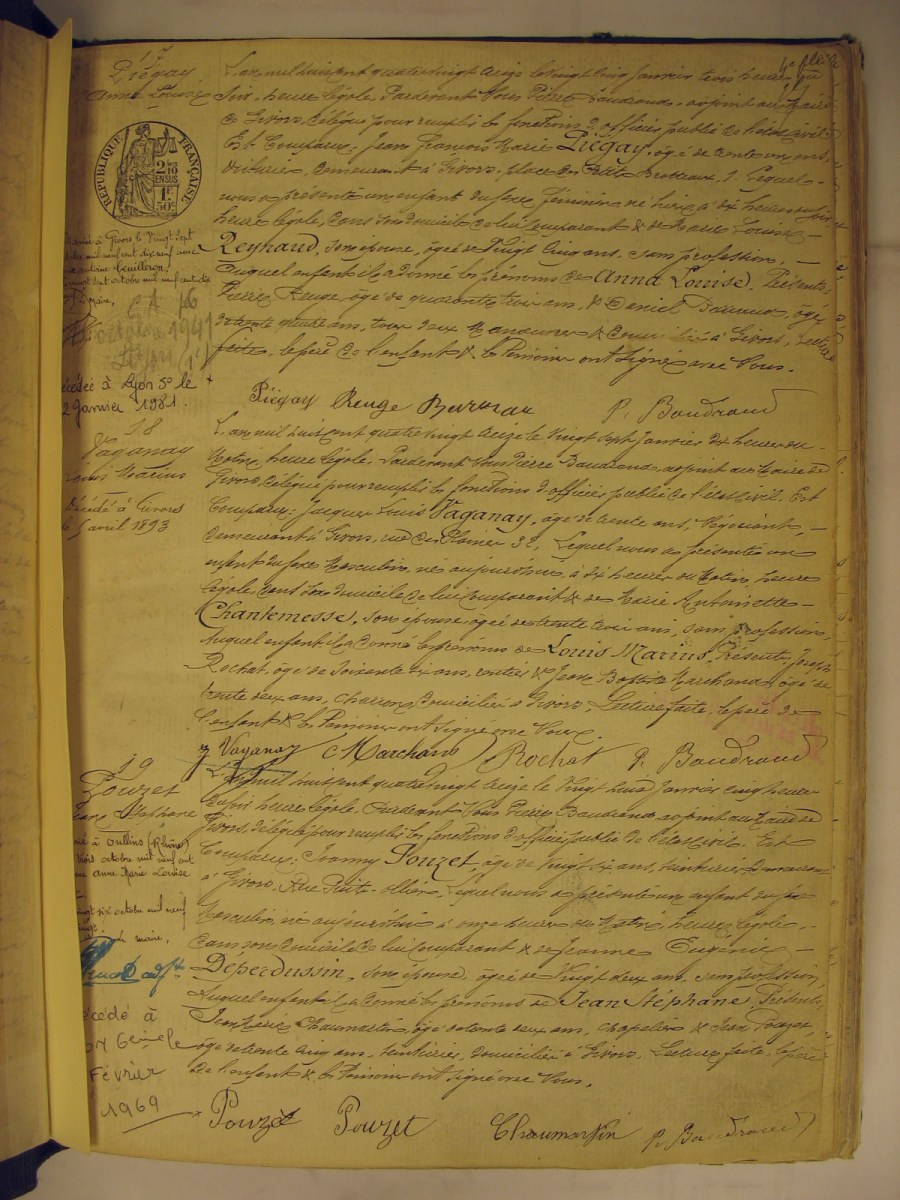 17
Piégay
Anna Louise
L'an mil huit cent quatre vingt treize le vingt cinq Janvier trois heures du
soir, heure légale, Pardevant Nous Pierre Baudrand, adjoint au Maire
de Givors, délégué pour remplir les fonctions d'officier public de l'état civil
Est Comparu: Jean François Marie Piégay, âgé de trente un ans,
voiturier, demeurant à Givors, place des Petits Brotteaux, 1, Lequel
nous a présenté un enfant du sexe féminin né hier à dix heures du soir
heure légale, dans son domicile de lui comparant & de Marie Louise
Reynaud, son épouse, âgée de vingt cinq ans, sans profession,
auquel enfant il a donné les prénoms de Anna Louise. Présents,
Pierre Reuge, âgé de quarante trois ans, & Daniel, âgé
de trente quatre ans, tous deux Manœuvres & domiciliés à Givors, Lecture
faite, le père de l'enfant & les Témoins ont signé avec Nous.
Piégay Reuge P. Baudrand
REPUBLIQUE FRANÇAISE
2/10 EN SUS
1F. 50c
à Givors le vingt sept
mil neuf cent dix neuf avec
antoine
vingt sept octobre mil neuf cent dix
maire,
octobre 1941
Lyon
décédée à Lyon 5e le
2 janvier 1981.
18
Vaganay
Louis Marius
Décédé à Givors
5 avril 1893
L'an mil huit cent quatre vingt treize le vingt sept Janvier dix heures du
Matin, heure légale, Pardevant Nous Pierre Baudrand, adjoint au Maire de
Givors, délégué pour remplir les fonctions d'officier public de l'état civil. Est
Comparu: Jacques Louis Vaganay, âgé de trente ans, Négociant,
demeurant à Givors, rue du 32, Lequel nous a présenté un
enfant du sexe Masculin, né aujourd'hui, à dix heures du Matin, heure
légale, dans son domicile de lui comparant & de Marie Antoinette
Chantemesse, son épouse, âgée de trente trois ans, sans profession,
auquel enfant il a donné les prénoms de Louis Marius. Présents, Joseph
Rochat, âgé de soixante dix ans, rentier & Jean Baptiste Marchand, âgé de
trente deux ans, charron, domiciliés à Givors, Lecture faite, le père de
l'enfant & les Témoins ont signé avec Nous.
Vaganay Marchand Rochat P. Baudrand
19
Pouzet
Jean Stéphane
L'an mil huit cent quatre vingt treize le vingt huit Janvier cinq heures
du soir heure légale, Pardevant Nous Pierre Baudrand adjoint au Maire de
Givors, délégué pour remplir les fonctions d'officier public de l'état civil. Est
Comparu: Joanny Pouzet, âgé de vingt six ans, teinturier, demeurant
à Givors, Rue Petite, Lequel nous a présenté un enfant du sexe
Masculin, né aujourd'hui à onze heures du Matin, heure légale,
dans son domicile de lui comparant & de Jeanne Eugénie
Déperdussin, son épouse, âgée de vingt deux ans, sans profession,
auquel enfant il a donné les prénoms de Jean Stéphane, Présents,
Jean Marie Chaumartin, âgé de trente deux ans, chapelier & Jean Pouzet,
âgé de trente cinq ans, teinturier, domiciliés à Givors. Lecture faite, le père
de l'enfant & les Témoins ont signé avec Nous.
Pouzet Pouzet Chaumartin P. Baudrand
à Oullins (Rhône)
trois octobre mil neuf cent
anne Marie Louise
vingt six octobre mil neuf
vingt.
Le maire,
décédé à
Lyon 6ème le
Février
1969